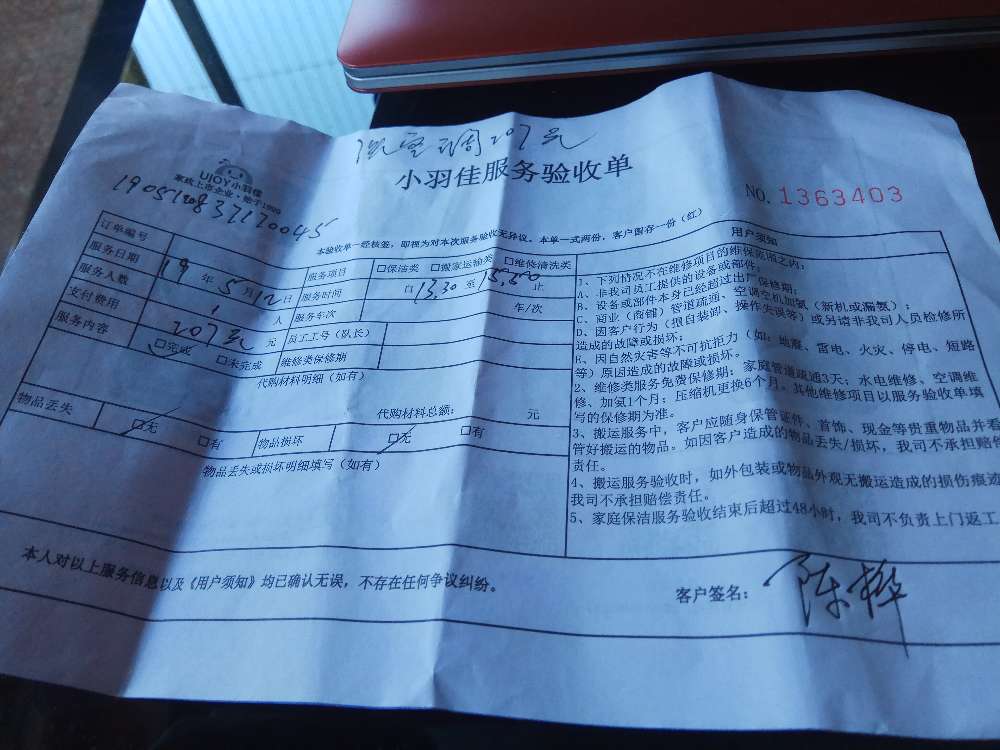 空调207元
小羽佳服务验收单
UJOY小羽佳
家政上市企业·始于1999
NO. 1363403
1905120837120045
本验收单一经核签，即视为对本次服务验收无异议。本单一式两份，客户留存一份（红）
订单编号
服务项目 □保洁类 □搬家运输类 □维修清洗类
服务日期 19年5月12日 服务时间 自13.30至15.50止
服务人数 1 人 服务车次 车/次
支付费用 207元 元 员工工号（队长）
服务内容 □完成 □未完成 维修类保修期
代购材料明细（如有）
代购材料总额： 元
物品丢失 □无 □有 物品损坏 □无 □有
物品丢失或损坏明细填写（如有）
用户须知
1、下列情况不在维修项目的维保范围之内：
A、非我司员工提供的设备或部件；
B、设备或部件本身已经超过出厂保修期；
C、商业（商铺）管道疏通、空调空机加氟（新机或漏氟）；
D、因客户行为（擅自装卸、操作失误等）或另请非我司人员检修所
造成的故障或损坏；
E、因自然灾害等不可抗拒力（如：地震、雷电、火灾、停电、短路
等）原因造成的故障或损坏。
2、维修类服务免费保修期：家庭管道疏通3天；水电维修、空调维
修、加氟1个月；压缩机更换6个月。其他维修项目以服务验收单填
写的保修期为准。
3、搬运服务中，客户应随身保管证件、首饰、现金等贵重物品并看
管好搬运的物品。如因客户造成的物品丢失/损坏，我司不承担赔偿
责任。
4、搬运服务验收时，如外包装或物品外观无搬运造成的损伤痕迹
我司不承担赔偿责任。
5、家庭保洁服务验收结束后超过48小时，我司不负责上门返工
本人对以上服务信息以及《用户须知》均已确认无误，不存在任何争议纠纷。
客户签名：陈桦